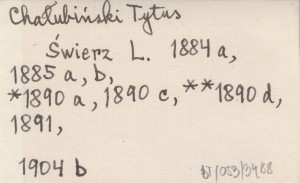 Chałubiński Tytus
Świerz L. 1884 a,
1885 a, b,
*1890 a, 1890 c, **1890 d,
1891,
1904 b